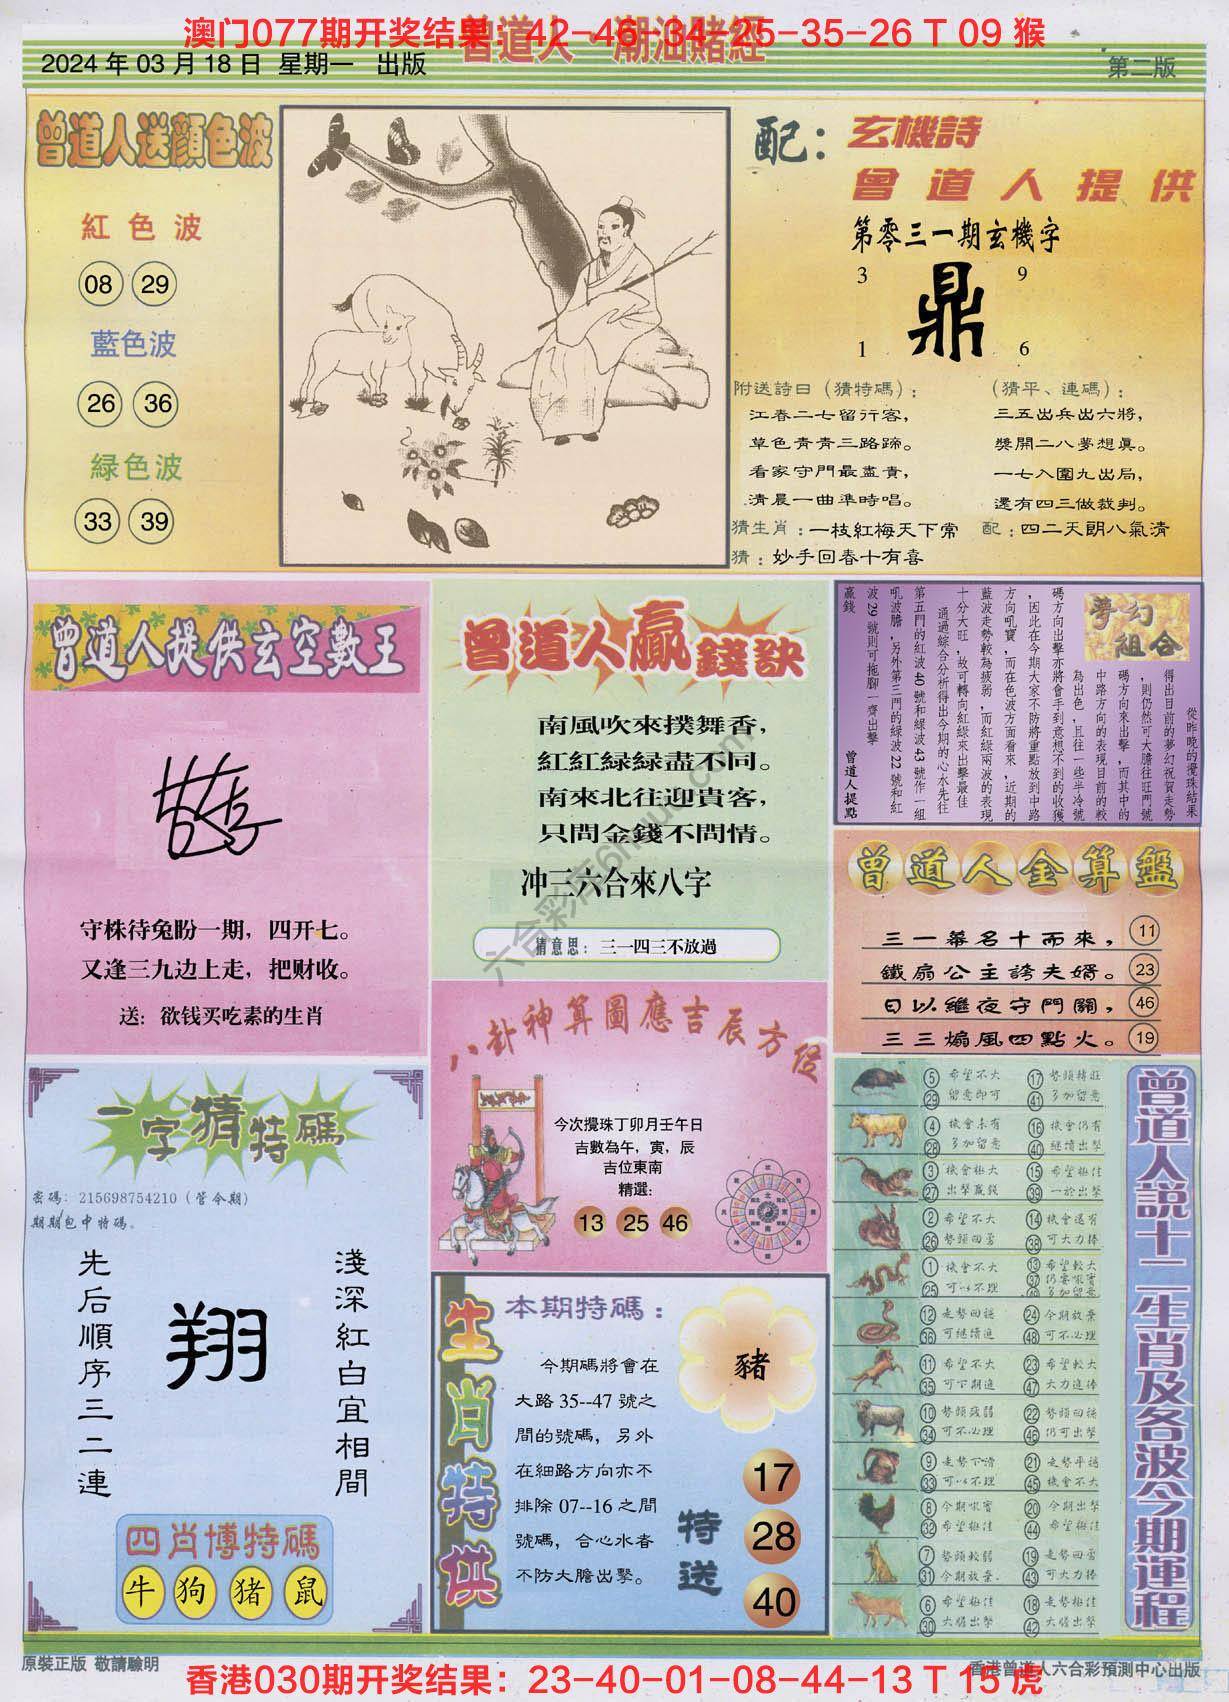 澳门077期开奖结果：42-46-34-25-35-26 T 09 猴
曾道人 潮汕賭經
2024 年 03 月 18 日 星期一 出版
第二版
曾道人送顏色波
紅色波
08 29
藍色波
26 36
緑色波
33 39
配：玄機詩
曾道人提供
第零三一期玄機字
3 9
鼎
1 6
附送詩曰（猜特碼）：
江春二七留行客，
草色青青三路蹄。
看家守門最盡責，
清晨一曲準時唱。
（猜平、連碼）：
三五出兵出六將，
獎開二八夢想真。
一七入圍九出局，
還有四三做裁判。
猜生肖：一枝紅梅天下常
配：四二天朗八氣清
猜：妙手回春十有喜
曾道人提供玄空數王
守株待兔盼一期，四开七。
又逢三九边上走，把财收。
送：欲钱买吃素的生肖
曾道人贏錢訣
南風吹來撲舞香，
紅紅緑緑盡不同。
南來北往迎貴客，
只問金錢不問情。
冲三六合來八字
猜意思：三一四三不放過
夢幻組合
從昨晚的攪珠結果
得出目前的夢幻祝賀走勢
，則仍然可大膽往旺門號
碼方向來出擊，而其中的
中路方向的表現目前的較
為出色，且往一些半冷號
碼方向出擊亦將會手到意想不到的收獲
，因此在今期大家不防將重點放到中路
方向吼寶，而在色波方面看來，近期的
藍波走勢較為疲弱，而紅綠兩波的表現
十分大旺，故可轉向紅綠來出擊最佳
通過綜合分析得出今期的心水先往
第五門的紅波40號和綠波43號作一組
吼波膽，另外第三門的綠波22號和紅
波29號則可拖腳一齊出擊
贏錢
曾道人提點
曾道人金算盤
三一幕名十而來， 11
鐵扇公主誇夫婿。 23
日以繼夜守門關， 46
三三煽風四點火。 19
八卦神算圖應吉辰方位
今次攪珠丁卯月壬午日
吉數為午，寅，辰
吉位東南
精選：
13 25 46
一字猜特碼
密碼：215698754210（管今期）
期期包中特碼。
先后順序三二連
翔
淺深紅白宜相間
四肖博特碼
牛 狗 猪 鼠
生肖特供
本期特碼：
今期碼將會在
大路 35--47 號之
間的號碼，另外
在細路方向亦不
排除 07--16 之間
號碼，合心水者
不防大膽出擊。
豬
特送
17
28
40
曾道人説十二生肖及各波今期運程
5 希望不大 17 勢頭轉旺
29 留意即可 41 多加留意
4 機會未有 16 機會仍有
28 多加留意 40 繼續出擊
3 機會極大 15 希望極佳
27 出擊贏錢 39 一於出擊
2 希望不大 14 機會還有
26 勢頭回勇 38 可大力捧
1 機會不大 13 希望較大
25 可以不理 37 仍要吼實
多加留意
12 走勢回穩 24 今期放棄
36 可繼續追 48 可不必理
11 希望不大 23 希望較大
35 可下期追 47 大力追捧
10 勢頭疲弱 22 勢頭回穩
34 可不必理 46 仍可出擊
9 走勢下滑 21 走勢平穩
33 可以不理 45 機會不大
8 今期吼實 20 今期出擊
32 希望極佳 44 希望極佳
7 勢頭較弱 19 走勢回勇
31 今期放棄. 43 可大力捧
6 希望極佳 18 走勢極佳
30 大膽出擊 42 大膽出擊
六合彩库6htuu.com
原裝正版 敬請驗明
香港曾道人六合彩預測中心出版
香港030期开奖结果：23-40-01-08-44-13 T 15 虎